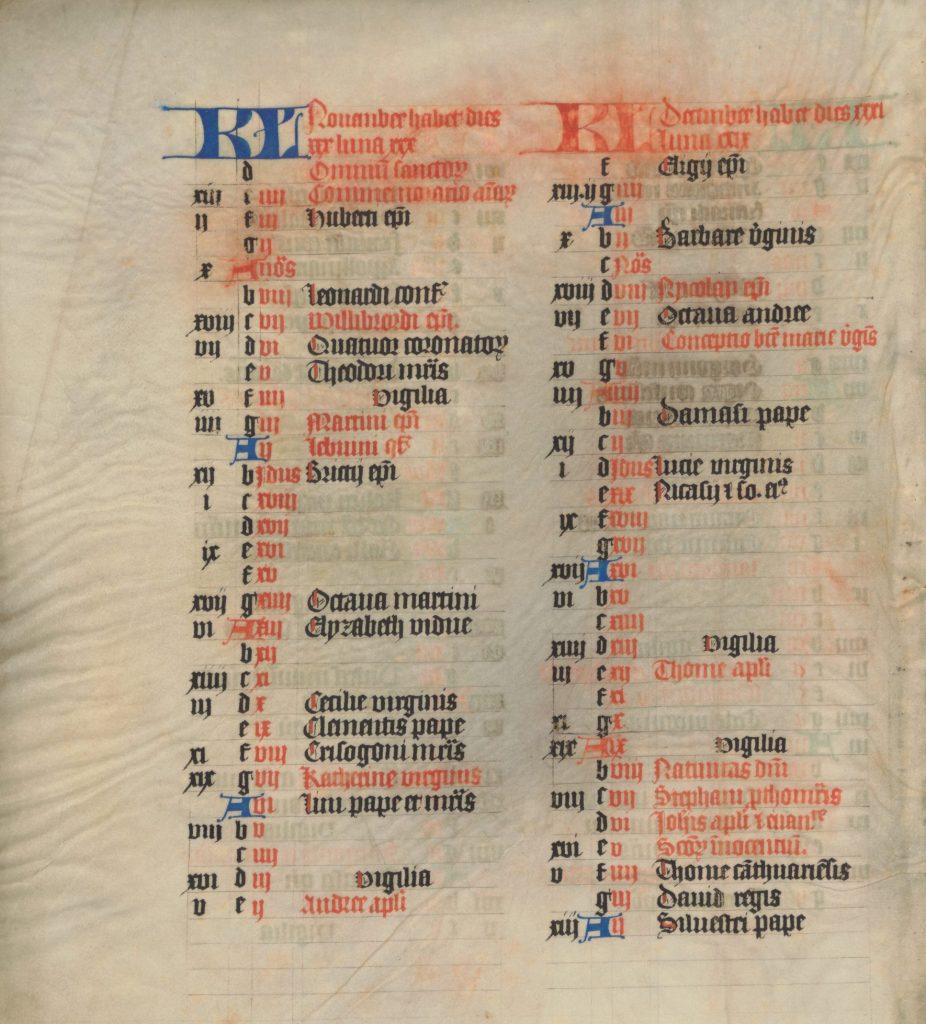 KL Nouember habet dies
xxx luna xxx
d Omniu͂ sanctoꝝ
xiii e iiii Commemoratio aı͂aꝝ
ij f iii Huberti ep͂i
g ij
x A nōs
b viij Leonardi conf͛
xviij c vij Willibrordi ep͂i.
vij d vi Quatuor coronatoꝝ
e v Theodori mr͂is
xv f iiij vigilia
iiij g iij Martini ep͂i
A ij
xij b Jdus Brictij ep͂i
i c xviij
d xvij
ix e xvi
f xv
xvij g xiiij Octaua martini
vi A xiij Elyzabeth vidue
b xij
xiiij c xi
iij d x Cecilie virginis
e ix Clementis pape
xi f viij Crisogoni mr͂is
xix g vij Katherine virginis
A vi Lini pape et mr͂is
viij b v
c iiij
xvi d iij vigilia
v e ij Andree apl͂i
KL December habet dies xxxi
luna xxix
f Eligij ep͂i
xiii.ij g iiij
A iij
x b ij Barbare v͂ginis
c Nōs
xviij d viij Nycolay ep͂i
vij e vij Octaua andree
f vi Conceptio bt͂e marie v͂gı͂s
xv g v
iiij A iiij
b iij Damasi pape
xij c ij
i d Jdus Lucie virginis
e xix Nicasij ⁊ so. ei⁹
ix f xviij
g xvij
xvij A xvi
vi b xv
c xiiij
xiiij d xiij vigilia
iij e xij Thome apl͂i
f xi
xi g x
xix A ix vigilia
b viij Natiuitas dn͂i
viij c vij Stephani p͂thomr͂is
d vi Joh͂is apl͂i ⁊ euan͛
xvi e v Sc͂oꝝ i͂nocentiu͂.
v f iiij Thome ca͂thuarie͂sis
g iij Dauid regis
xiij A ij Siluestri pape